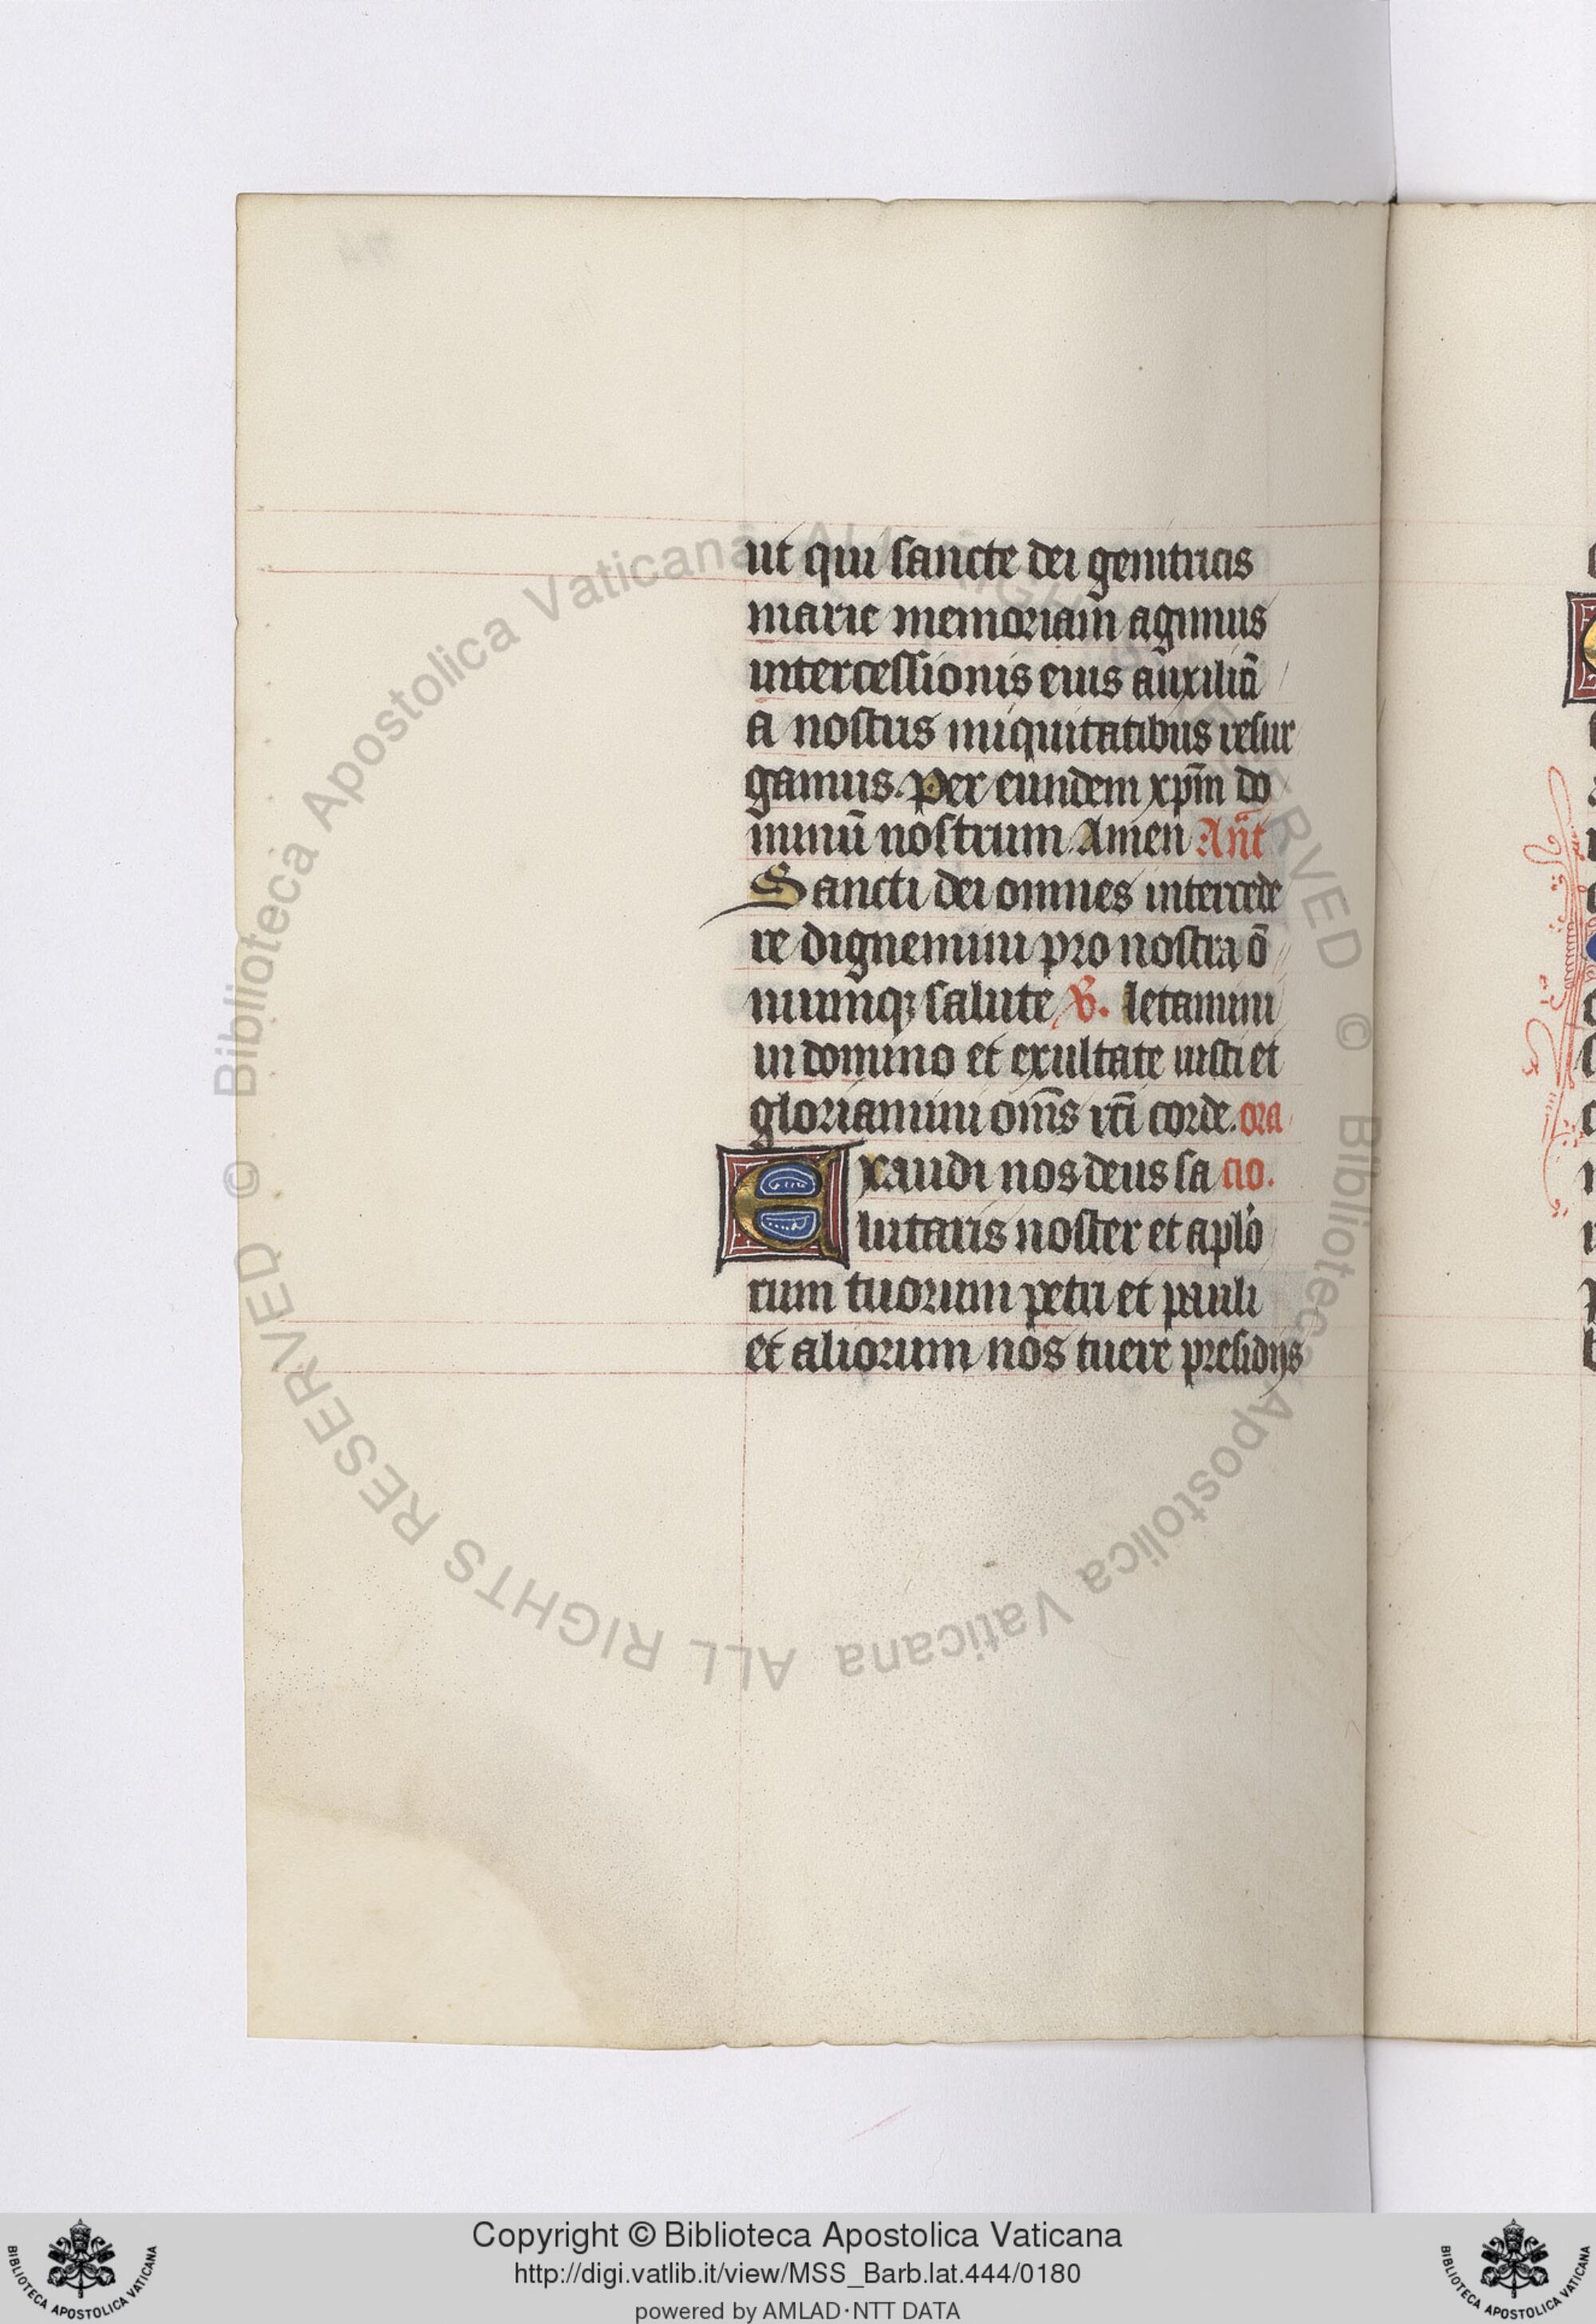 ut qui sancte dei genitricis
marie memoriam agimus
intercessionis eius auxiliā
a nostris iniquitatibus resur
gamus. Per eundem xp̄m do
minū nostrum Amen Añt
Sancti dei omnes intercede
re dignemini pro nostra ō
niumqꝫ salute ℣. letamini
in domino et exultate iusti et
gloriamini om̄s rc̄i corde. ora
Exaudi nos deus sa cio.
lutaris noster et aplo
rum tuorum petri et pauli
et aliorum nos tuere presidijs
Copyright © Biblioteca Apostolica Vaticana
http://digi.vatlib.it/view/MSS_Barb.lat.444/0180
powered by AMLAD·NTT DATA
BIBLIOTECA APOSTOLICA VATICANA
BIBLIOTECA APOSTOLICA VATICANA
© Biblioteca Apostolica Vaticana ALL RIGHTS RESERVED
© Biblioteca Apostolica Vaticana ALL RIGHTS RESERVED